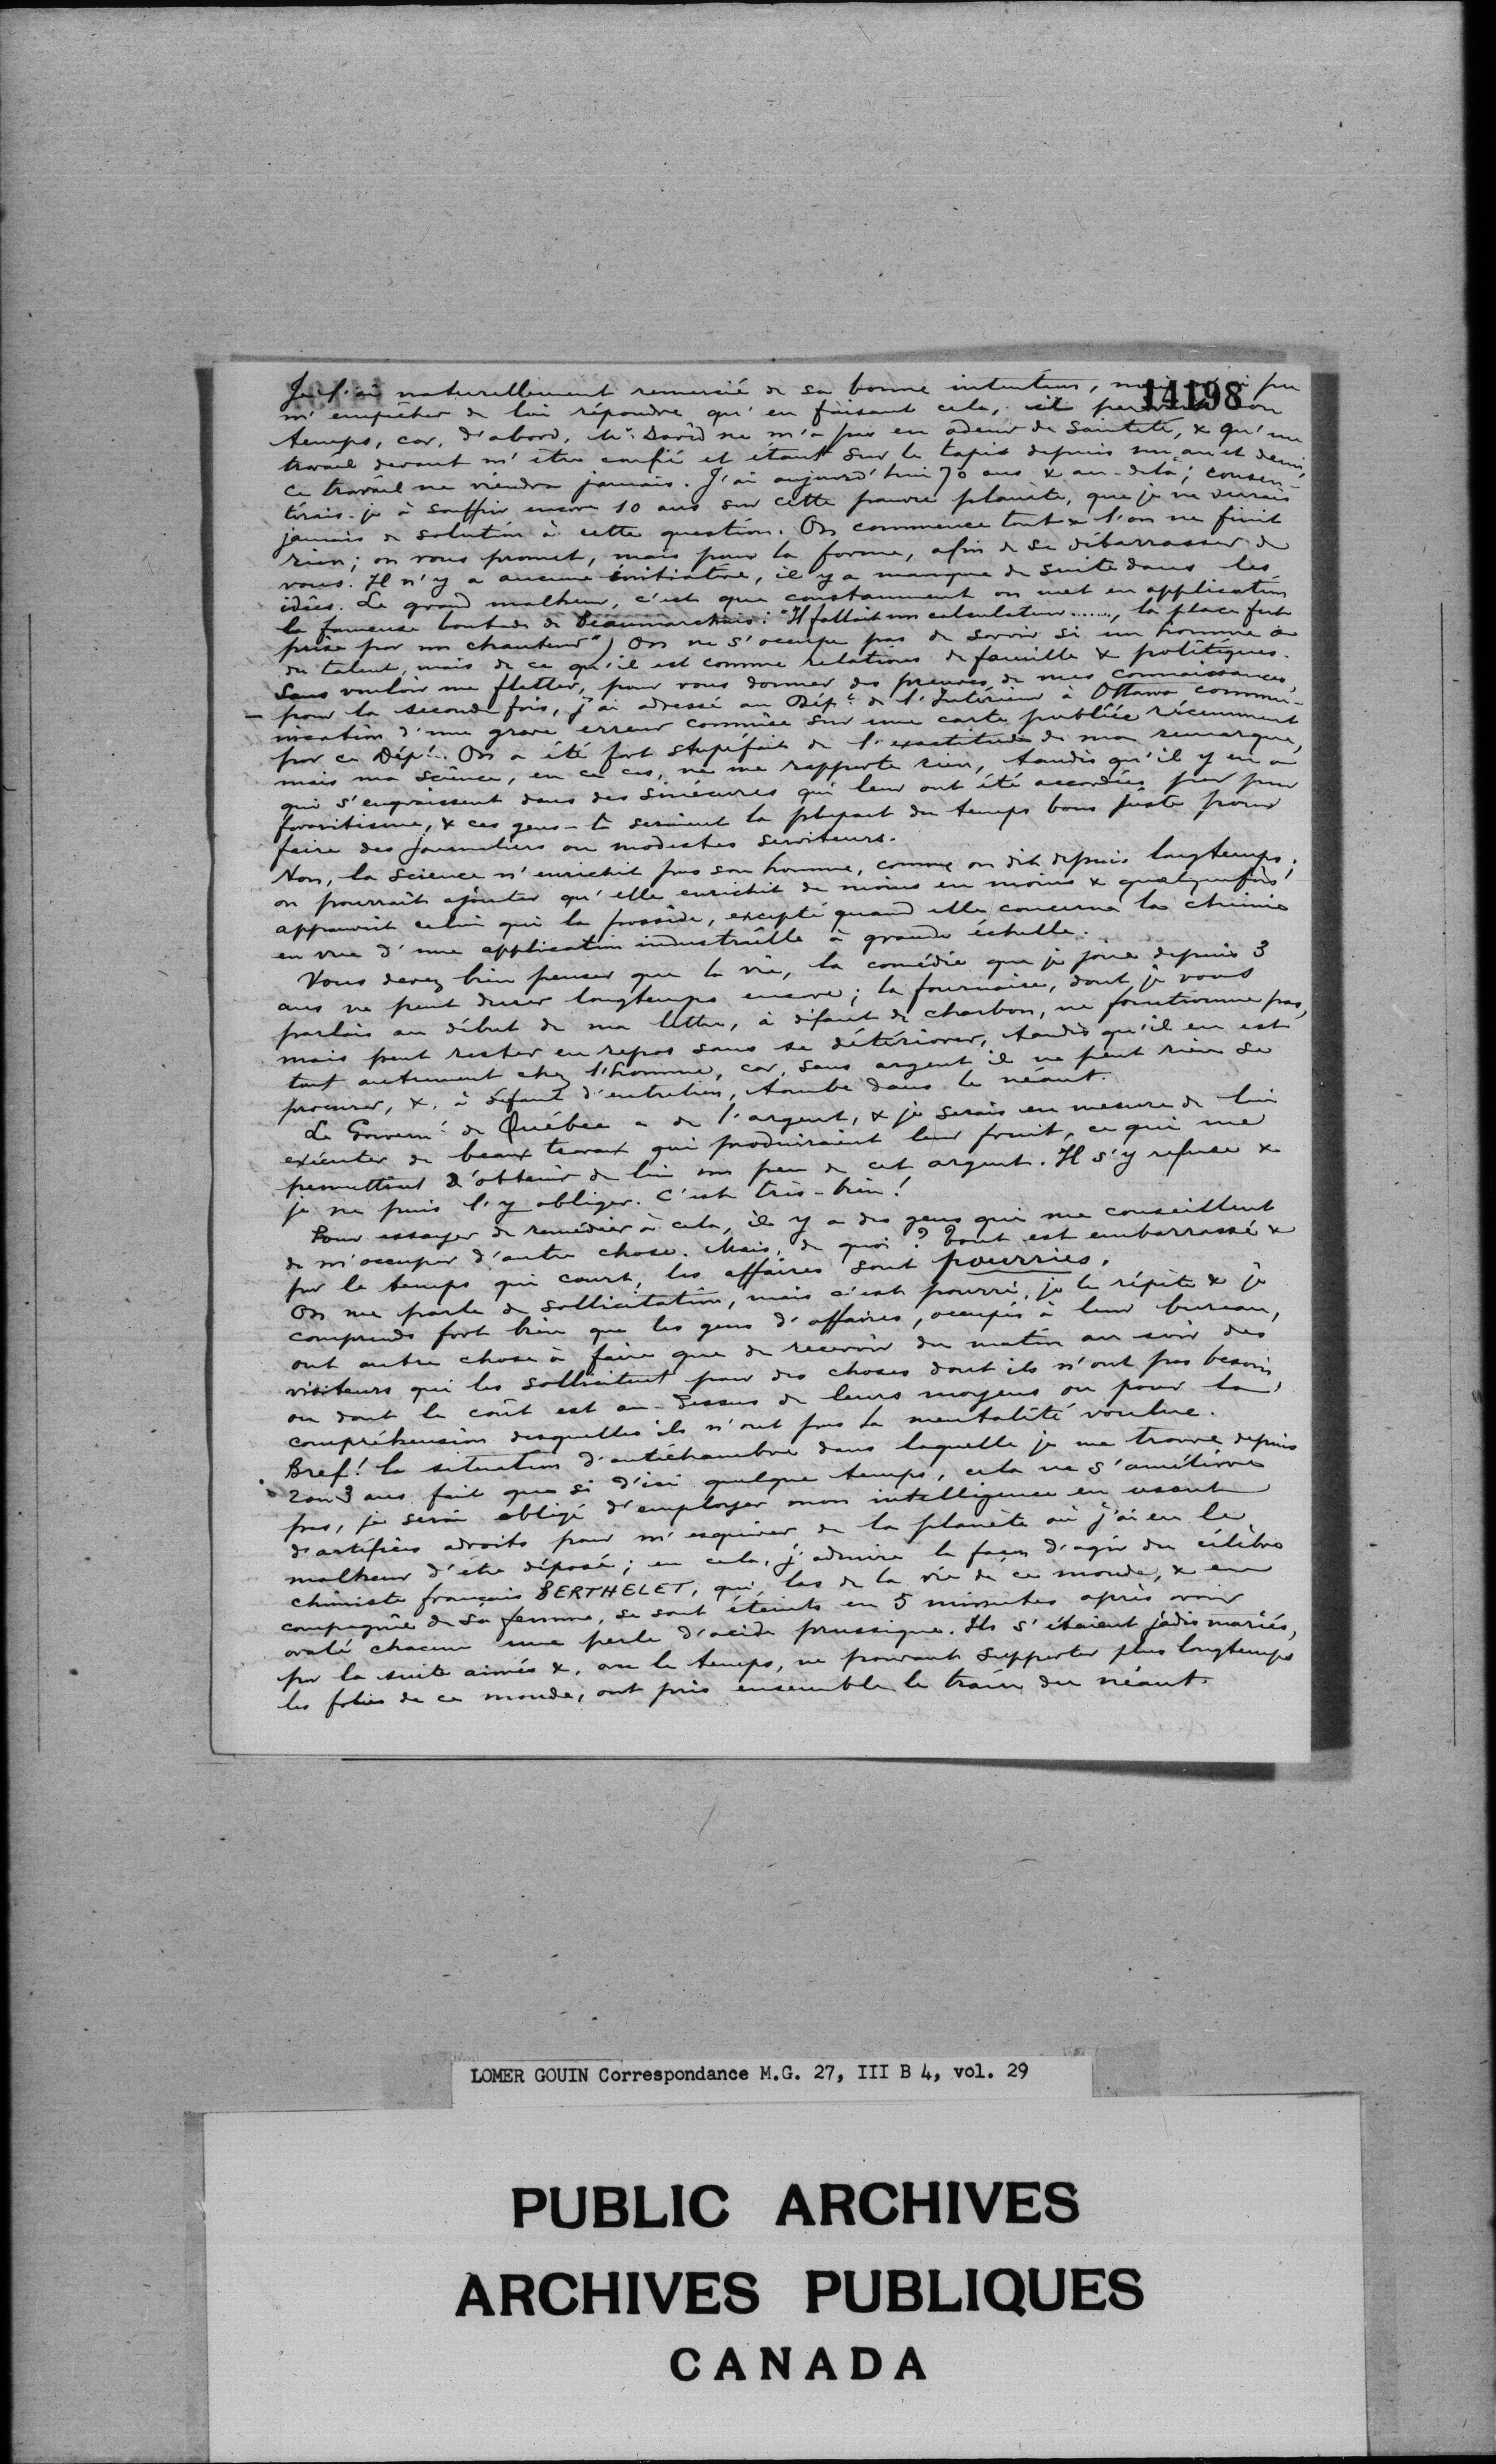 14198
Je l'ai naturellement remercié de sa bonne intention, pu
m'empêcher de lui répondre qu'en faisant cela, il son
temps, car, d'abord, Mr. David ne m'a pas en odeur de sainteté, & qu'un
travail devant m'être confié et étant sur le tapis depuis un an et demi,
ce travail ne viendra jamais. J'ai aujourd'hui 70 ans & au-delà; consen-
tirais-je à souffrir encore 10 ans sur cette pauvre planète, que je ne verrais
jamais de solution à cette question. On commence tout & l'on ne finit
rien; on vous promet, mais pour la forme, afin de se débarrasser de
vous. Il n'y a aucune initiative, il y a manque de suite dans les
idées. Le grand malheur, c'est que constamment on met en application
la fameuse boutade de Beaumarchais: "Il fallait un calculateur......, la place fut
prise par un chanteur") On ne s'occupe pas de savoir si un homme a
du talent, mais de ce qu'il est comme relations de famille & politiques.
Sans vouloir me flatter, pour vous donner des preuves de mes connaissances,
— pour la seconde fois, j'ai adressé au Dépt. de l'Intérieur à Ottawa commu-
nication d'une grave erreur commise sur une carte publiée récemment
par ce Dépt. On a été fort stupéfait de l'exactitude de ma remarque,
mais ma science, en ce cas, ne me rapporte rien, tandis qu'il y en a
qui s'engraissent dans des sinécures qui leur ont été accordées par pur
favoritisme, & ces gens-là seraient la plupart du temps bons juste pour
faire des journaliers ou modestes serviteurs.
Non, la science n'enrichit pas son homme, comme on dit depuis longtemps;
on pourrait ajouter qu'elle enrichit de moins en moins & quelquefois
appauvrit celui qui la possède, excepté quand elle concerne la chimie
en vue d'une application industrielle à grande échelle.
Vous devez bien penser que la vie, la comédie que je joue depuis 3
ans ne peut durer longtemps encore; la fournaise, dont je vous
parlais au début de ma lettre, à défaut de charbon, ne fonctionne pas,
mais peut rester en repos sans se détériorer, tandis qu'il en est
tout autrement chez l'homme, car, sans argent il ne peut rien se
procurer, &, à défaut d'entretien, tombe dans le néant.
Le Governt de Québec a de l'argent, & je serais en mesure de lui
exécuter de beaux travaux qui produiraient leur fruit, ce qui me
permettrait d'obtenir de lui un peu de cet argent. Il s'y refuse &
je ne puis l'y obliger. C'est très-bien!
Pour essayer de remédier à cela, il y a des gens qui me conseillent
de m'occuper d'autre chose. Mais, de quoi? Tout est embarrassé &
par le temps qui court, les affaires sont pourries.
On me parle de sollicitation, mais c'est pourri, je le répète & je
comprends fort bien que les gens d'affaires, occupés à leur bureau,
ont autre chose à faire que de recevoir du matin au soir des
visiteurs qui les sollicitent pour des choses dont ils n'ont pas besoin,
ou dont le coût est au-dessus de leurs moyens ou pour la
compréhension desquelles ils n'ont pas la mentalité voulue.
Bref! la situation d'antichambre dans laquelle je me trouve depuis
2 ou 3 ans fait que si d'ici quelque temps, cela ne s'améliore
pas, je serai obligé d'employer mon intelligence en usant
d'artifices adroits pour m'esquiver de la planète où j'ai eu le
malheur d'être déposé; en cela, j'admire la façon d'agir du célèbre
chimiste français BERTHELET, qui, las de la vie de ce monde, & en
compagnie de sa femme, se sont éteints en 5 minutes après avoir
avalé chacun une perle d'acide prussique. Ils s'étaient jadis mariés,
par la suite aimés &, avec le temps, ne pouvant supporter plus longtemps
les folies de ce monde, ont pris ensemble le train du néant.
LOMER GOUIN Correspondance M.G. 27, III B 4, vol. 29
PUBLIC ARCHIVES
ARCHIVES PUBLIQUES
CANADA